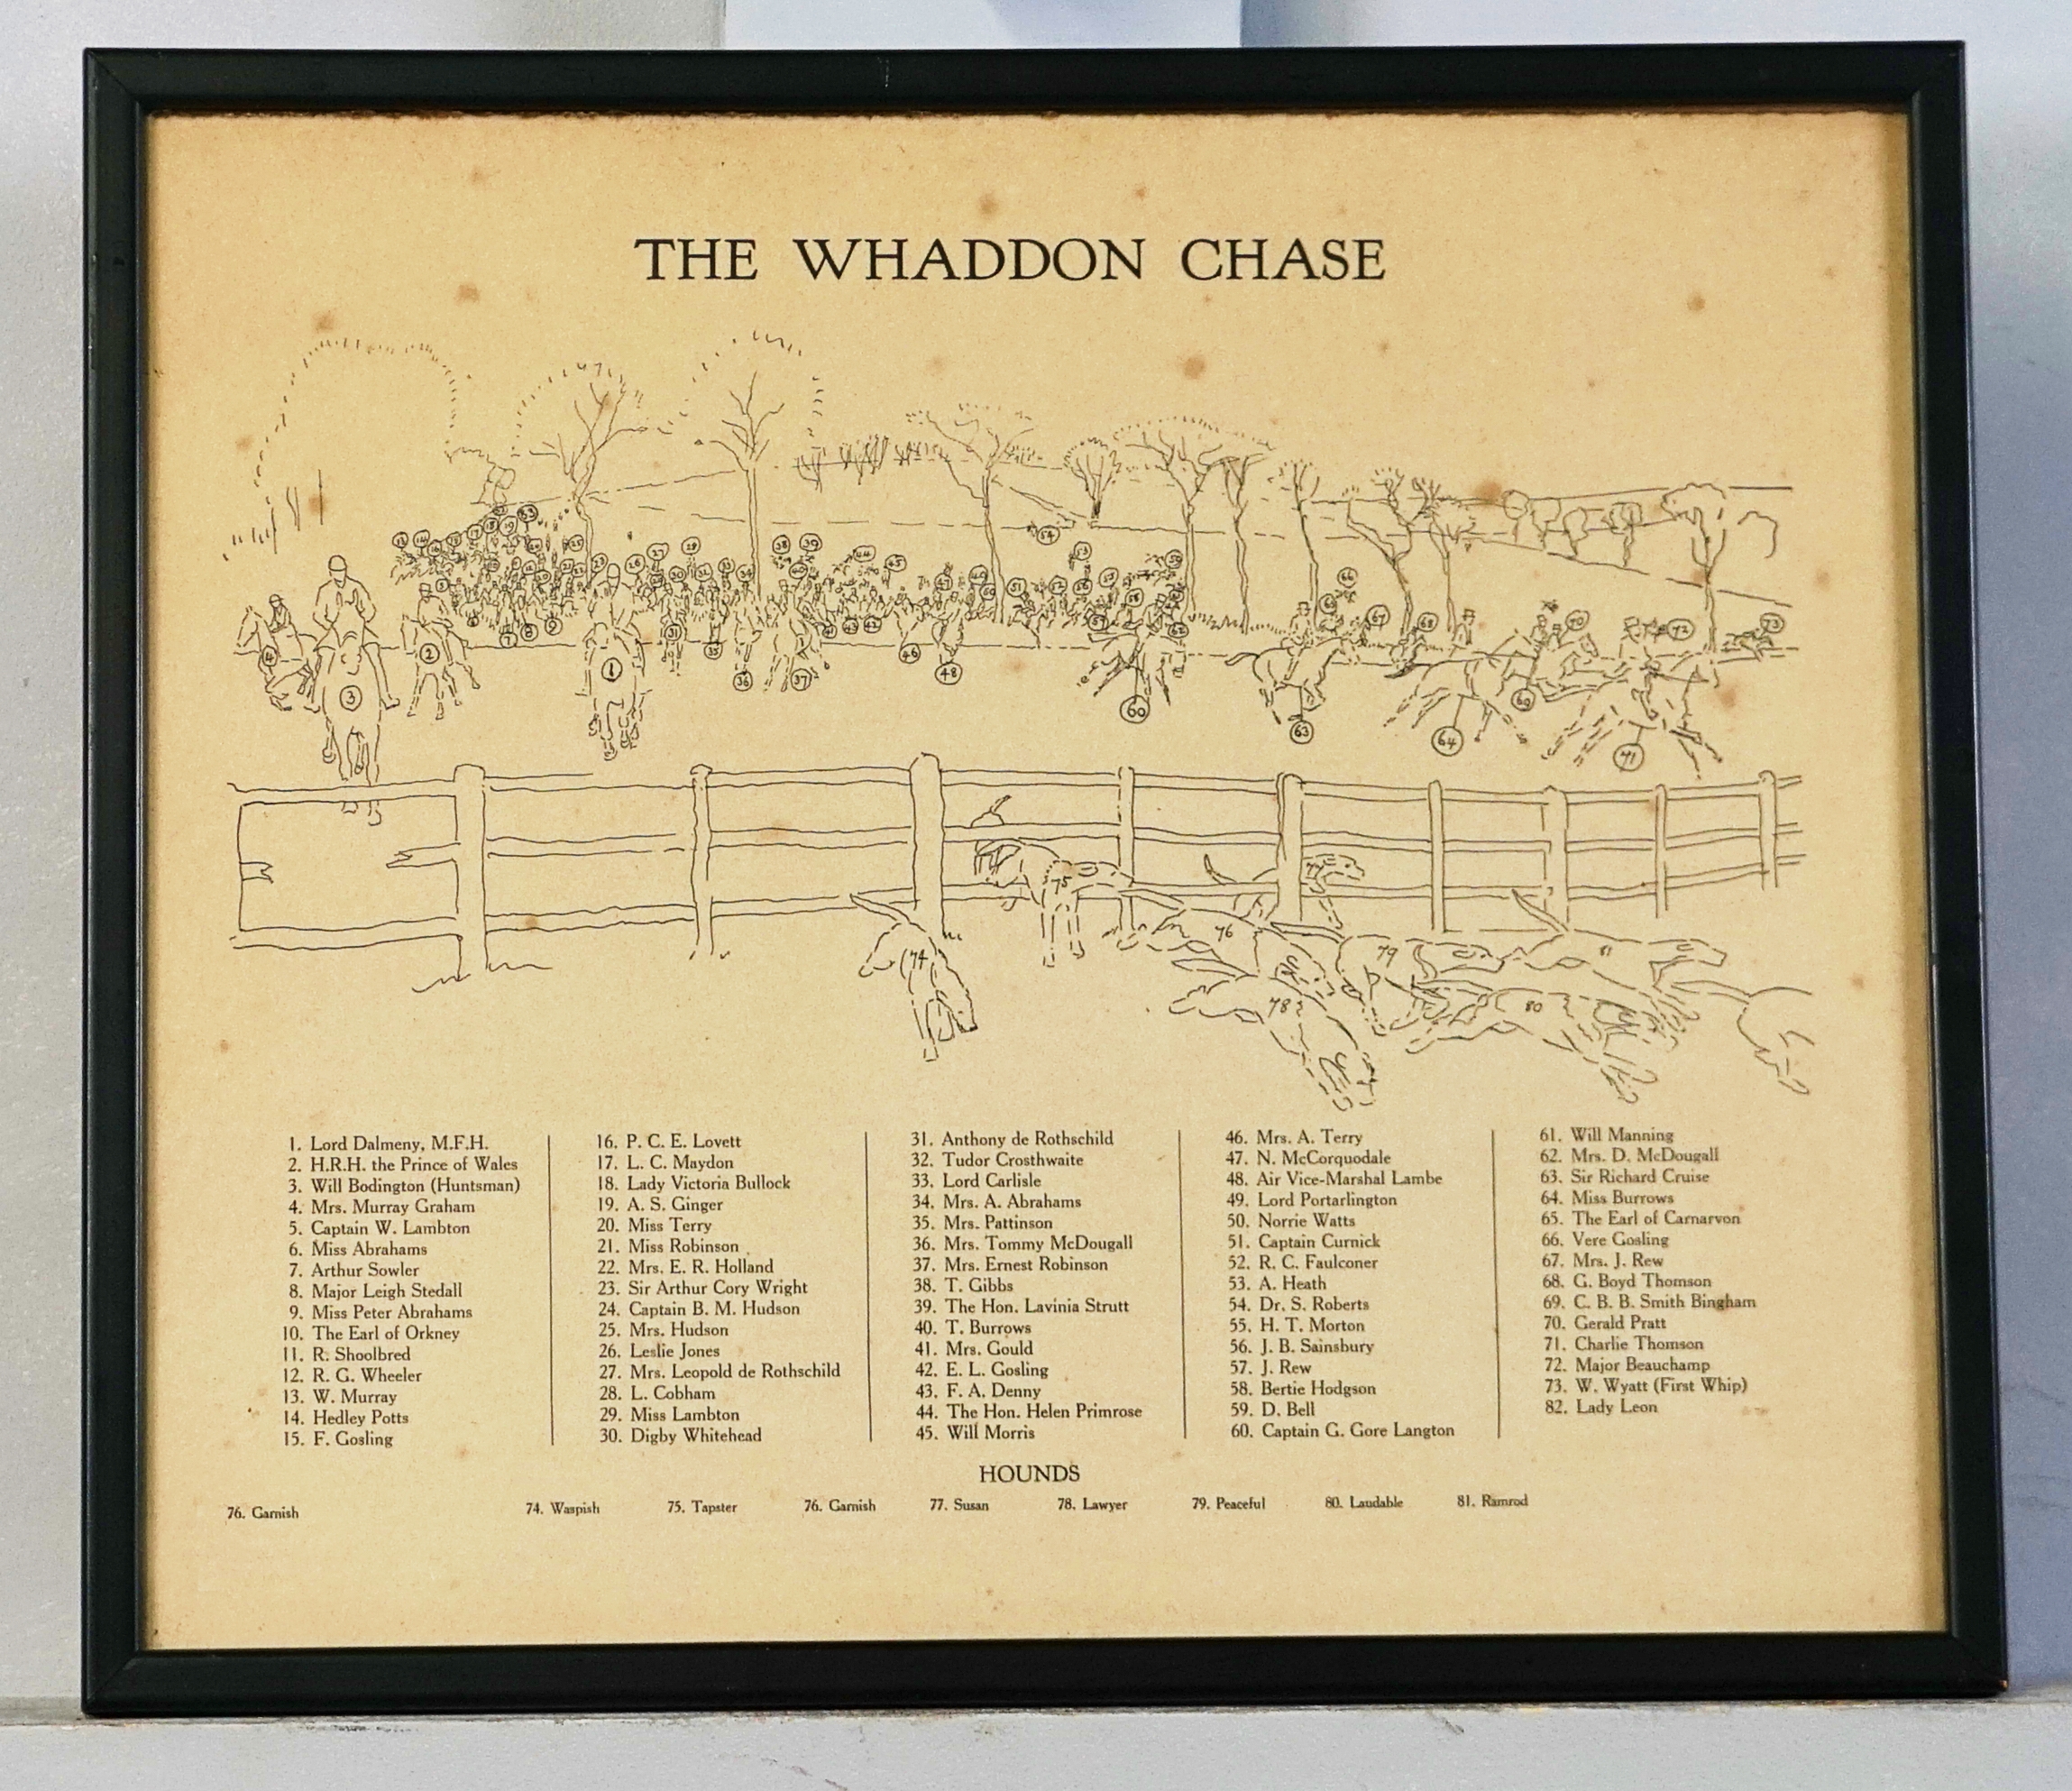 THE WHADDON CHASE
1. Lord Dalmeny, M.F.H.
2. H.R.H. the Prince of Wales
3. Will Bodington (Huntsman)
4. Mrs. Murray Graham
5. Captain W. Lambton
6. Miss Abrahams
7. Arthur Sowler
8. Major Leigh Stedall
9. Miss Peter Abrahams
10. The Earl of Orkney
11. R. Shoolbred
12. R. G. Wheeler
13. W. Murray
14. Hedley Potts
15. F. Gosling
16. P. C. E. Lovett
17. L. C. Maydon
18. Lady Victoria Bullock
19. A. S. Ginger
20. Miss Terry
21. Miss Robinson
22. Mrs. E. R. Holland
23. Sir Arthur Cory Wright
24. Captain B. M. Hudson
25. Mrs. Hudson
26. Leslie Jones
27. Mrs. Leopold de Rothschild
28. L. Cobham
29. Miss Lambton
30. Digby Whitehead
31. Anthony de Rothschild
32. Tudor Crosthwaite
33. Lord Carlisle
34. Mrs. A. Abrahams
35. Mrs. Pattinson
36. Mrs. Tommy McDougall
37. Mrs. Ernest Robinson
38. T. Gibbs
39. The Hon. Lavinia Strutt
40. T. Burrows
41. Mrs. Gould
42. E. L. Gosling
43. F. A. Denny
44. The Hon. Helen Primrose
45. Will Morris
46. Mrs. A. Terry
47. N. McCorquodale
48. Air Vice-Marshal Lambe
49. Lord Portarlington
50. Norrie Watts
51. Captain Curnick
52. R. C. Faulconer
53. A. Heath
54. Dr. S. Roberts
55. H. T. Morton
56. J. B. Sainsbury
57. J. Rew
58. Bertie Hodgson
59. D. Bell
60. Captain G. Gore Langton
61. Will Manning
62. Mrs. D. McDougall
63. Sir Richard Cruise
64. Miss Burrows
65. The Earl of Carnarvon
66. Vere Gosling
67. Mrs. J. Rew
68. G. Boyd Thomson
69. C. B. B. Smith Bingham
70. Gerald Pratt
71. Charlie Thomson
72. Major Beauchamp
73. W. Wyatt (First Whip)
82. Lady Leon
HOUNDS
76. Garnish 74. Waspish 75. Tapster 76. Garnish 77. Susan 78. Lawyer 79. Peaceful 80. Laudable 81. Ramrod